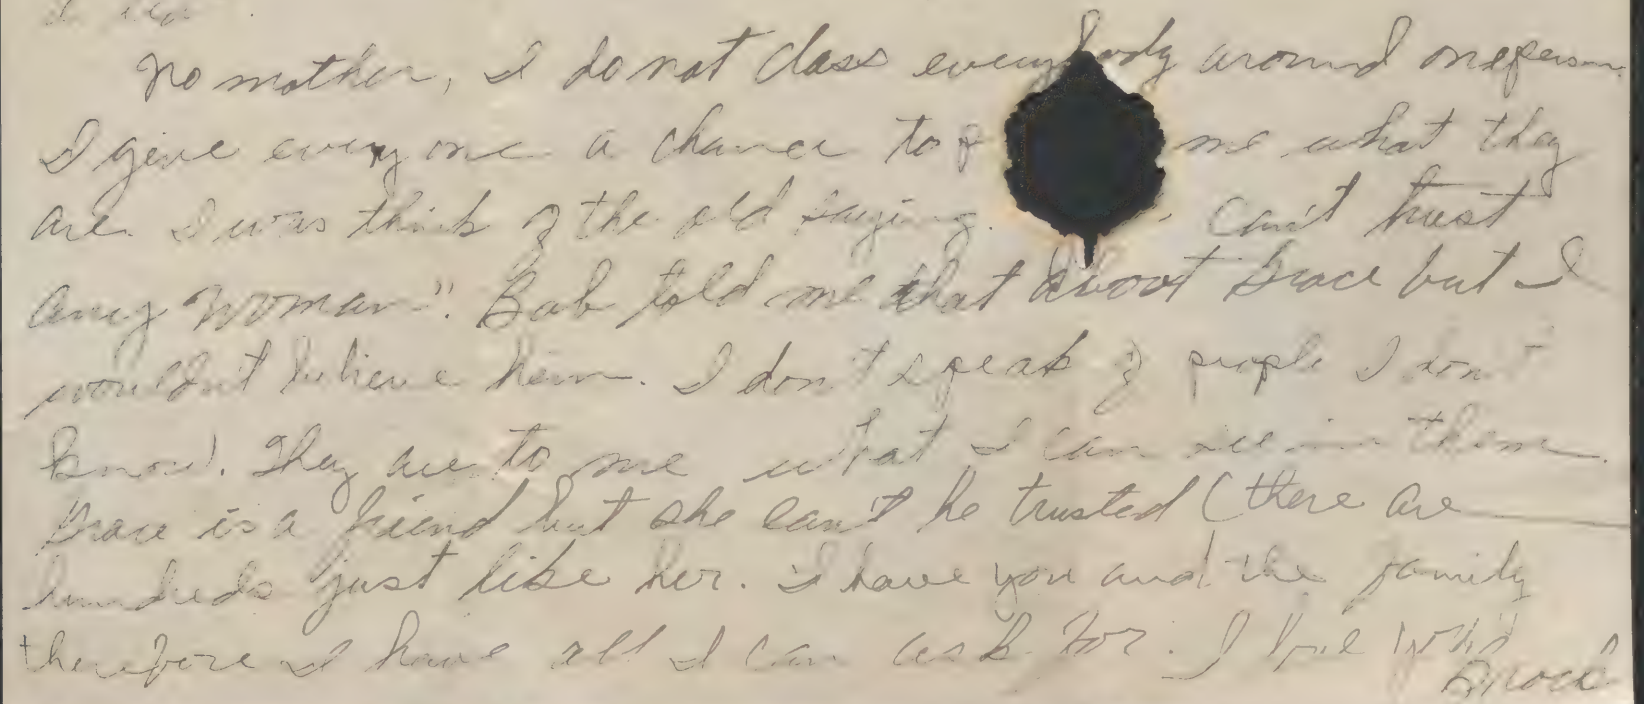 No mother, I do not class everybody around one person.
I give everyone a chance to me what they
are. I was think of the old saying can't trust
any woman". Bob told me that about Grace but I
wouldn't believe him. I don't speak of people I don't
know. They are to me what I can see in them.
Grace is a friend but she can't be trusted (there are
hundreds just like her. I have you and the family
therefore I have all I can ask for. I love you